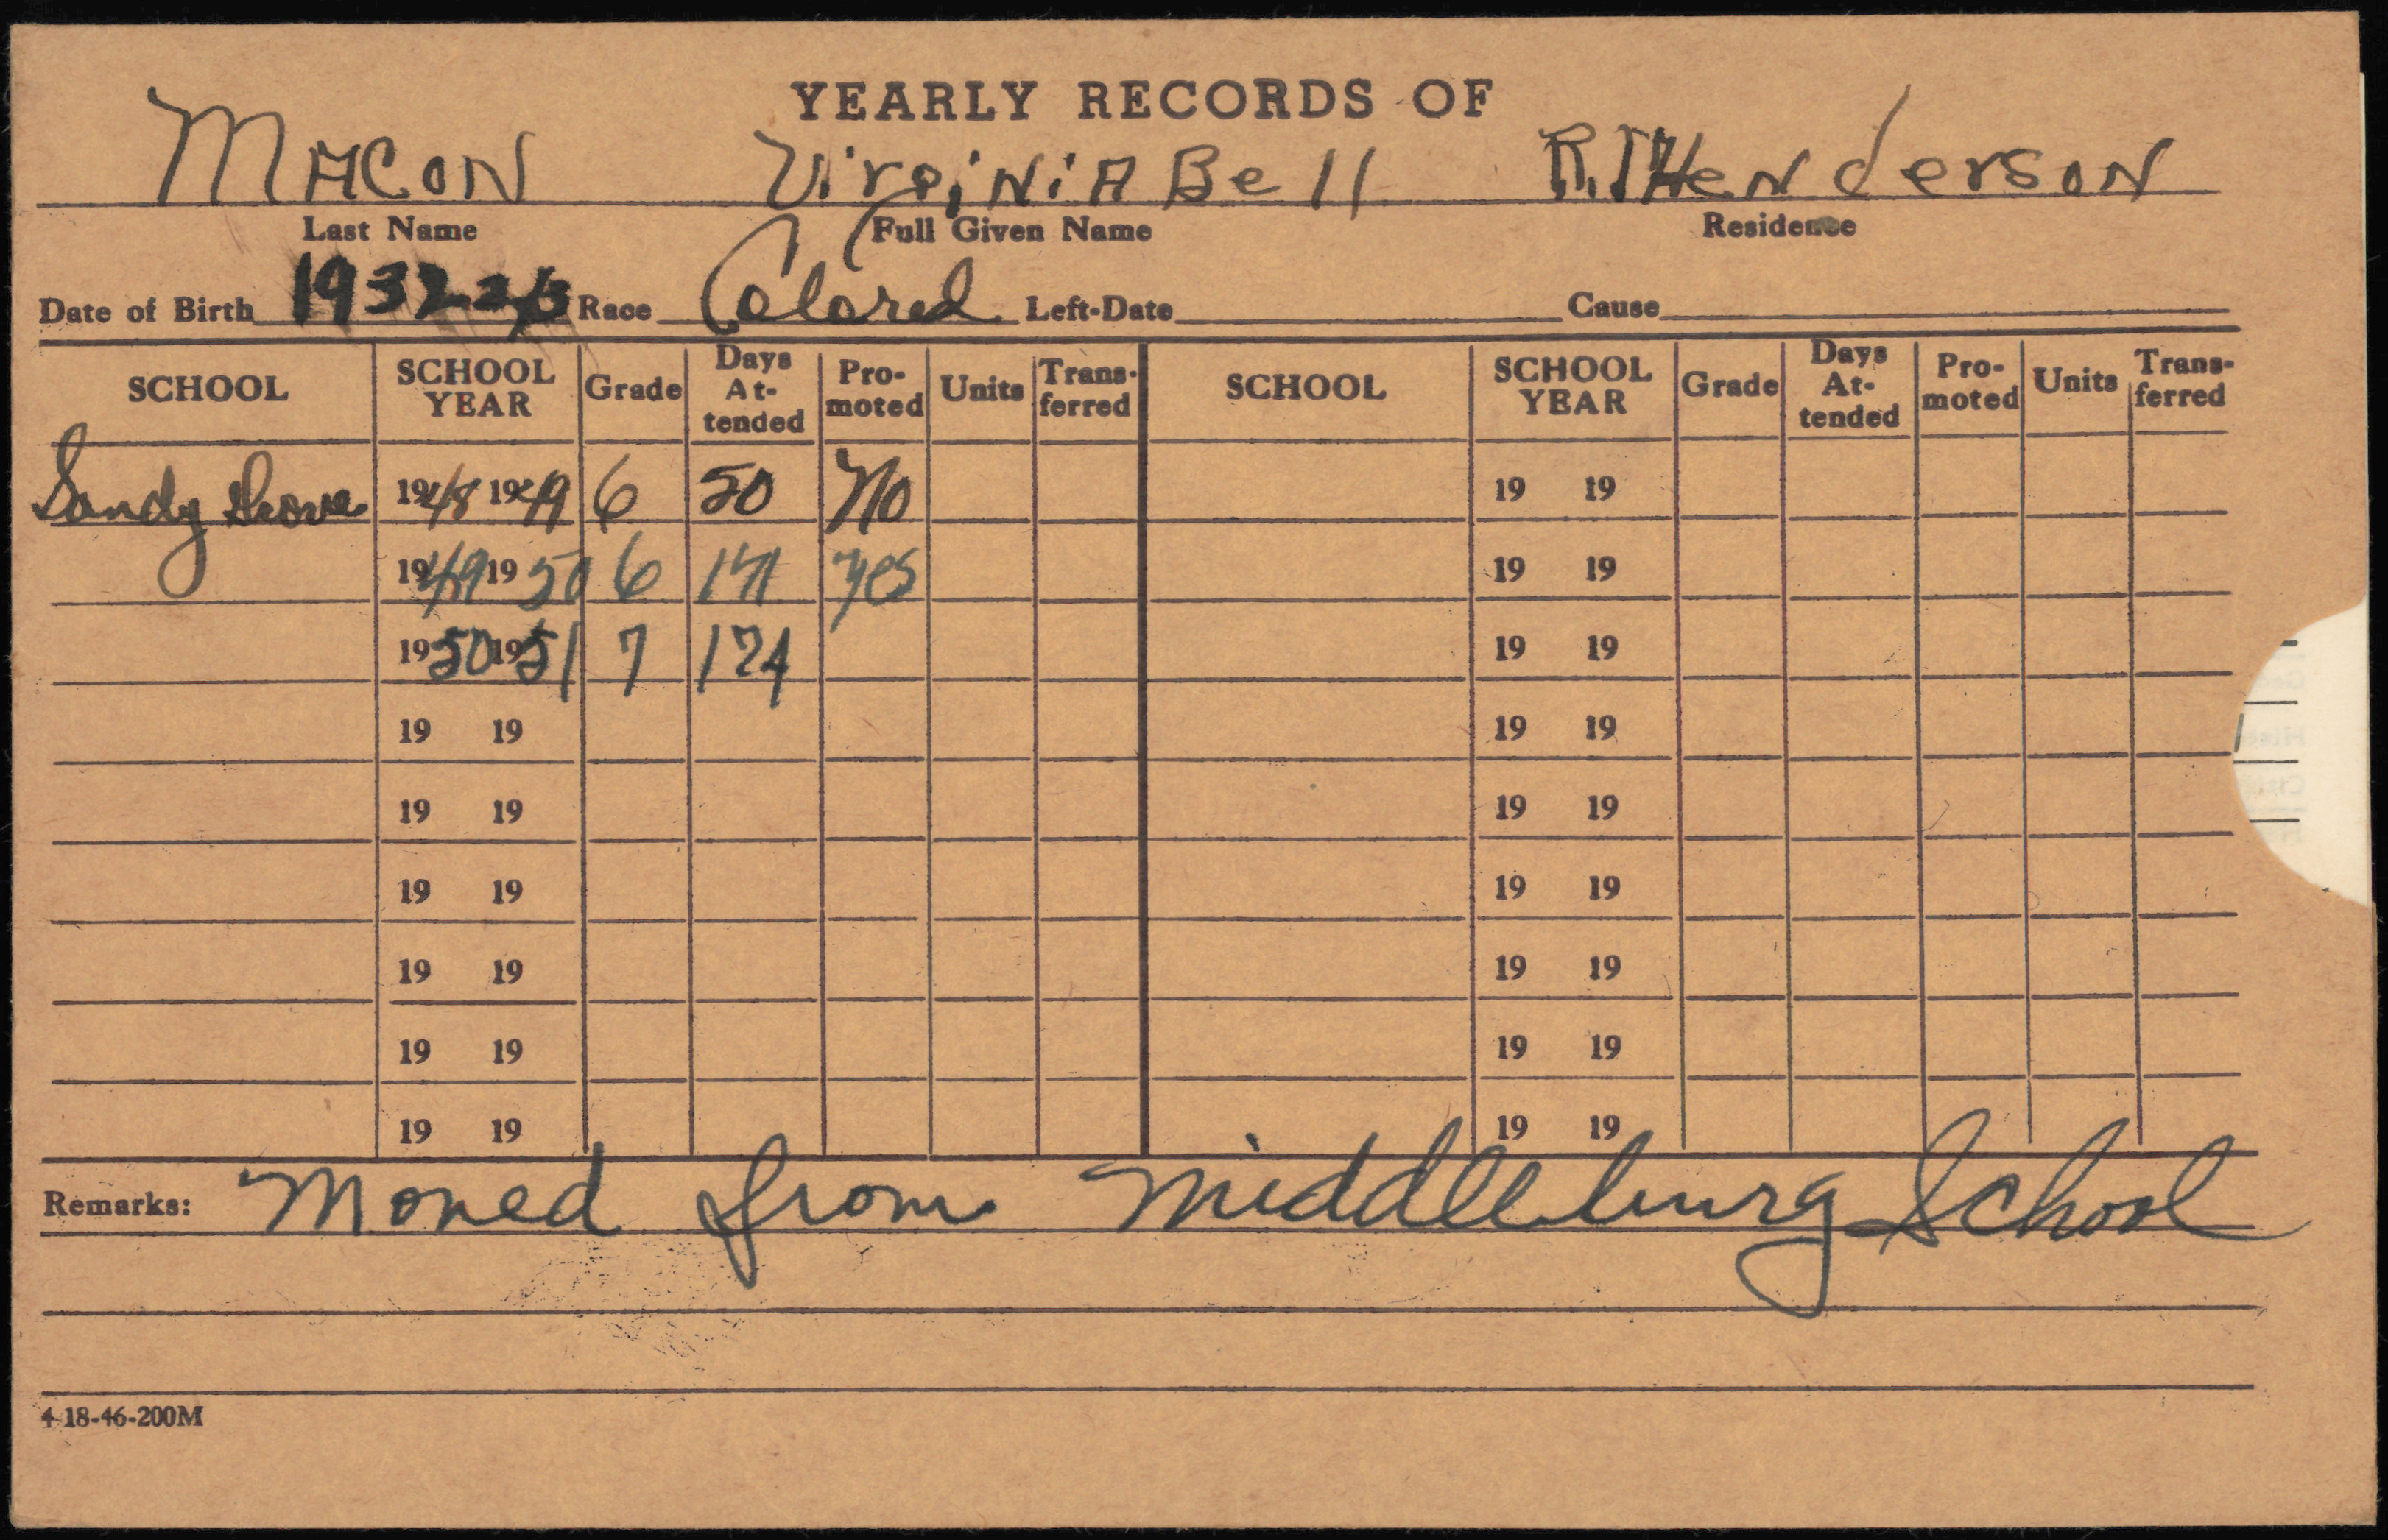 YEARLY RECORDS OF
MACON Virginia Bell R.1 Henderson
Last Name Full Given Name Residence
Date of Birth 1932 Race Colored Left-Date Cause
SCHOOL SCHOOL YEAR Grade Days At-tended Pro-moted Units Trans-ferred SCHOOL SCHOOL YEAR Grade Days At-tended Pro-moted Units Trans-ferred
Sandy Grove 1948 1949 6 50 No 19 19
1949 1950 6 171 yes 19 19
1950 1951 7 174 19 19
19 19 19 19
19 19 19 19
19 19 19 19
19 19 19 19
19 19 19 19
19 19 19 19
Remarks: Moved from Middleburg School
4-18-46-200M